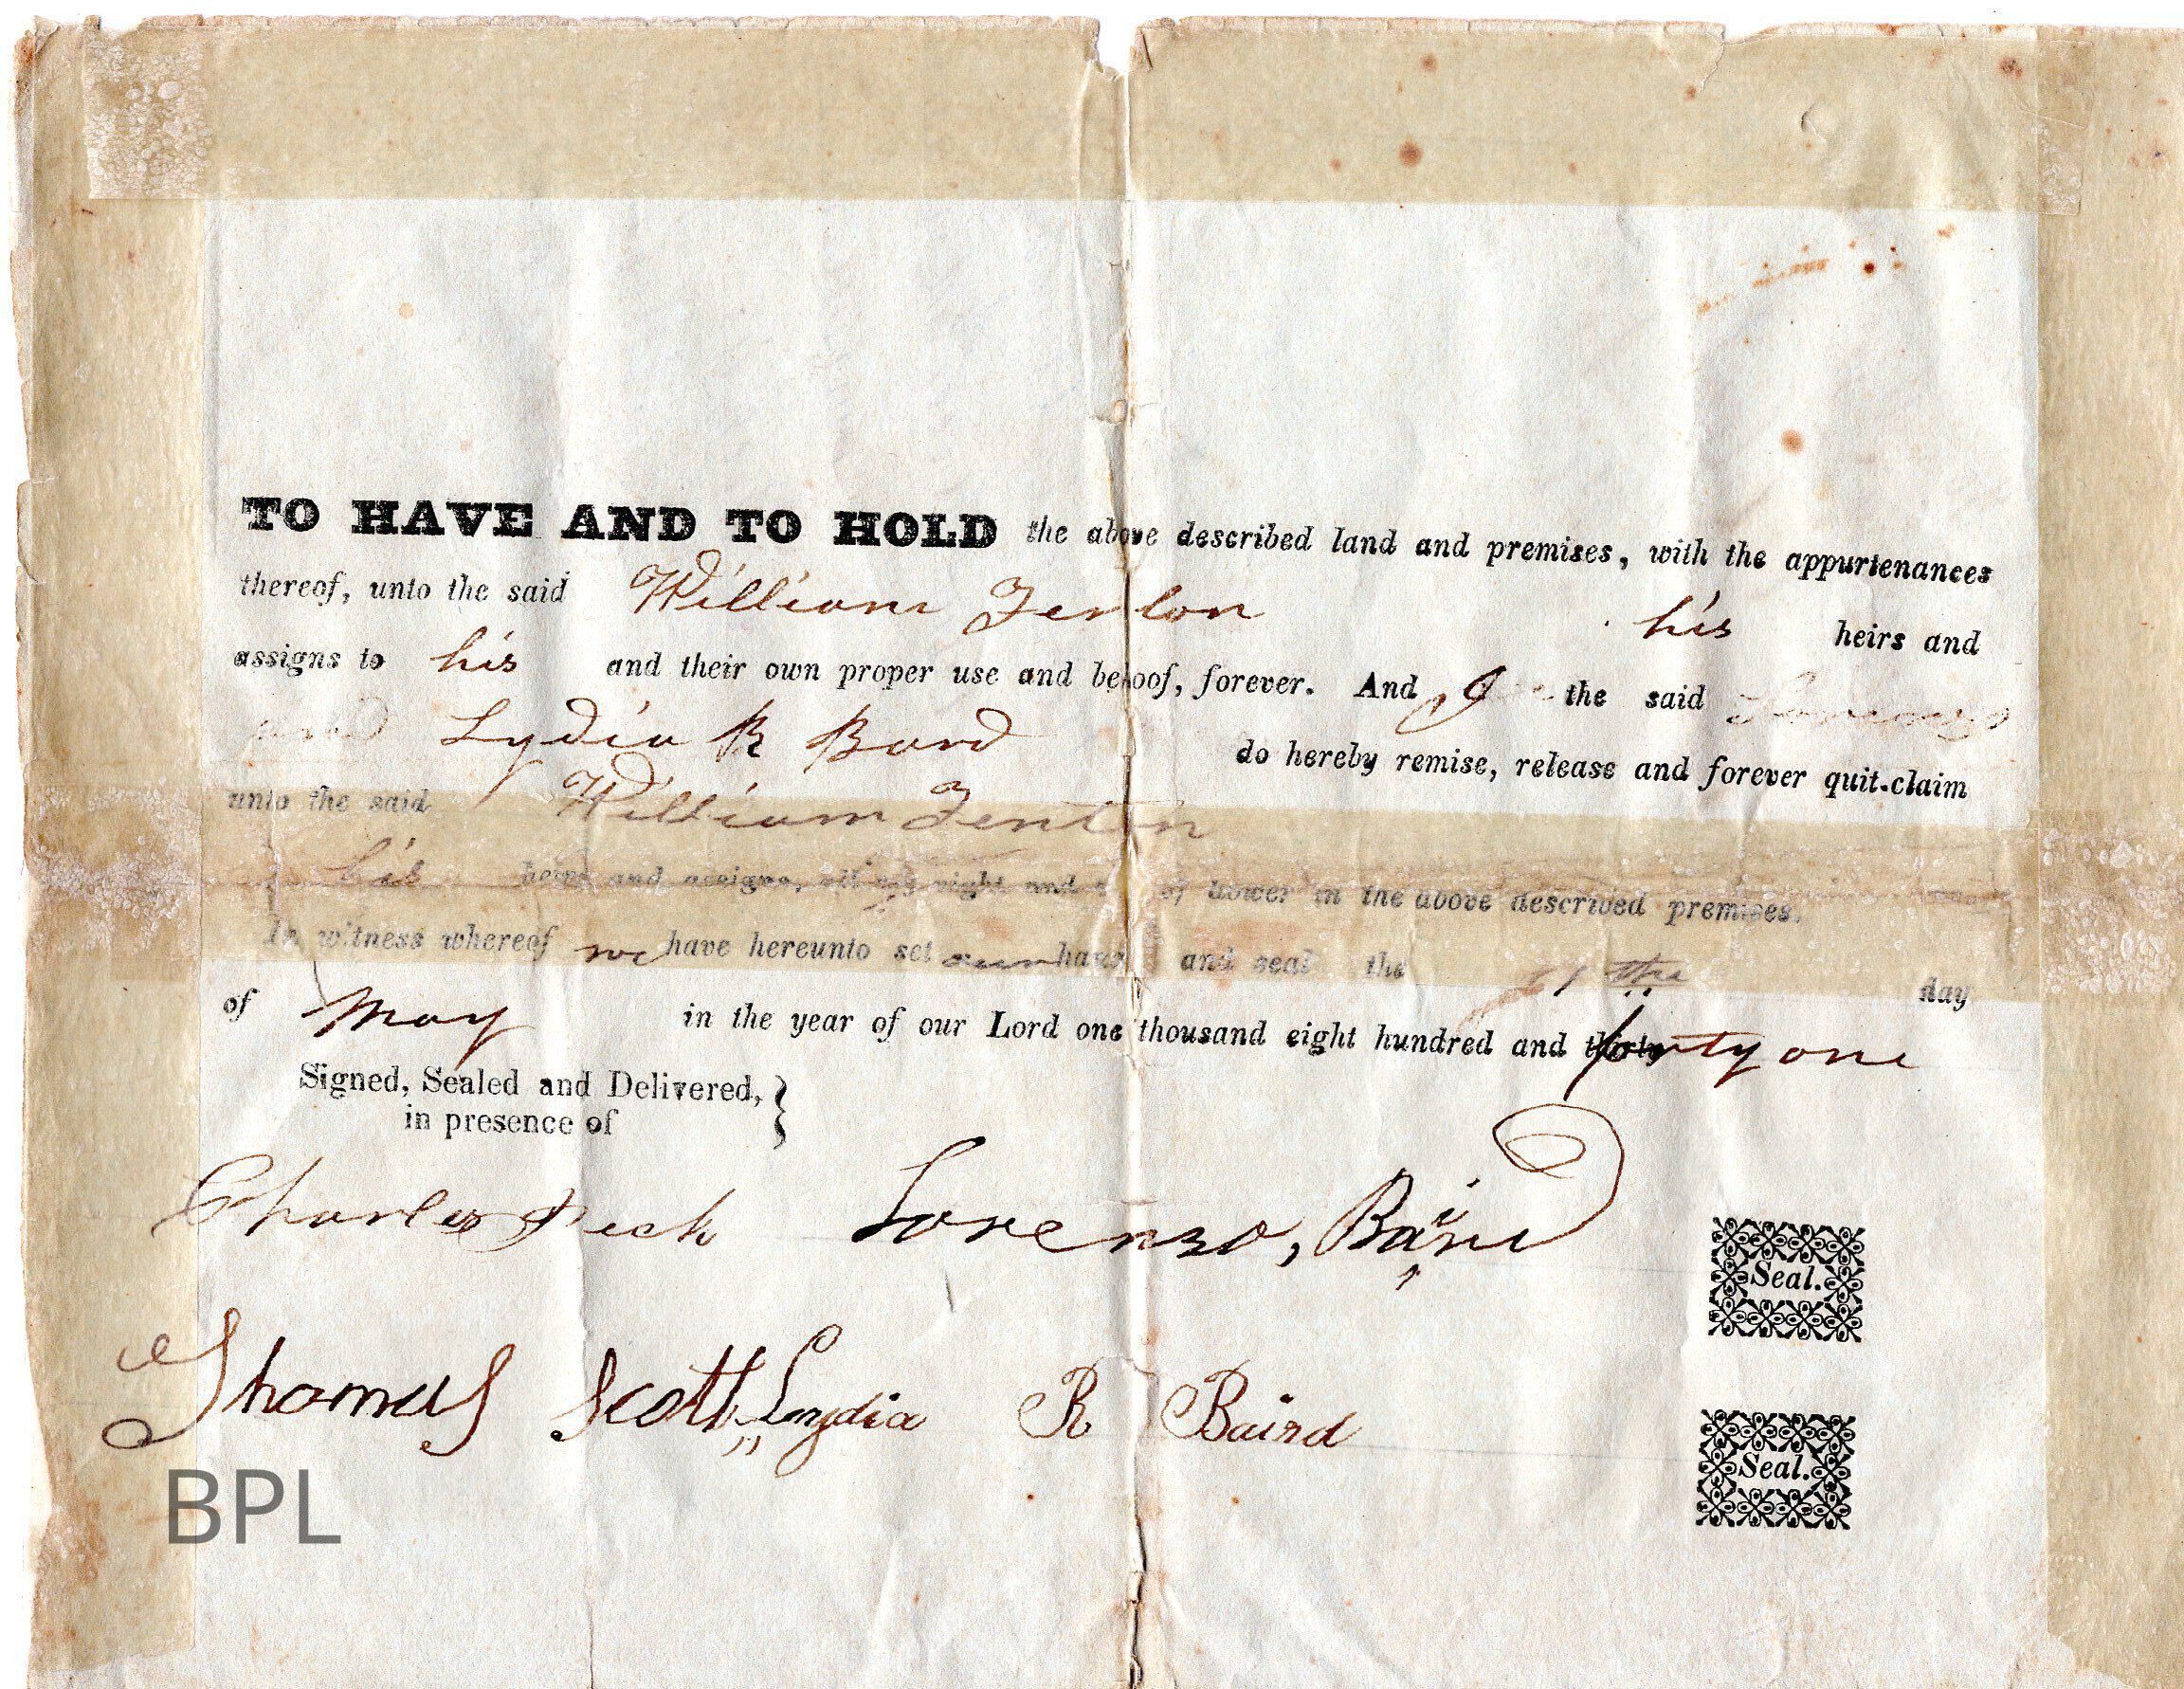 TO HAVE AND TO HOLD the above described land and premises, with the appurtenances
thereof, unto the said William Fenton his heirs and
assigns to his and their own proper use and behoof, forever. And I the said
Lydia R Bard do hereby remise, release and forever quit-claim
unto the said William Fenton
his heirs and assigns, all my right and of dower in the above described premises.
In witness whereof we have hereunto set our hand and seal the day
of May in the year of our Lord one thousand eight hundred and forty one
Signed, Sealed and Delivered,
in presence of
Charles Peck Lorenzo, Baird
Seal.
Thomas Scott Lydia R Baird
Seal.
BPL